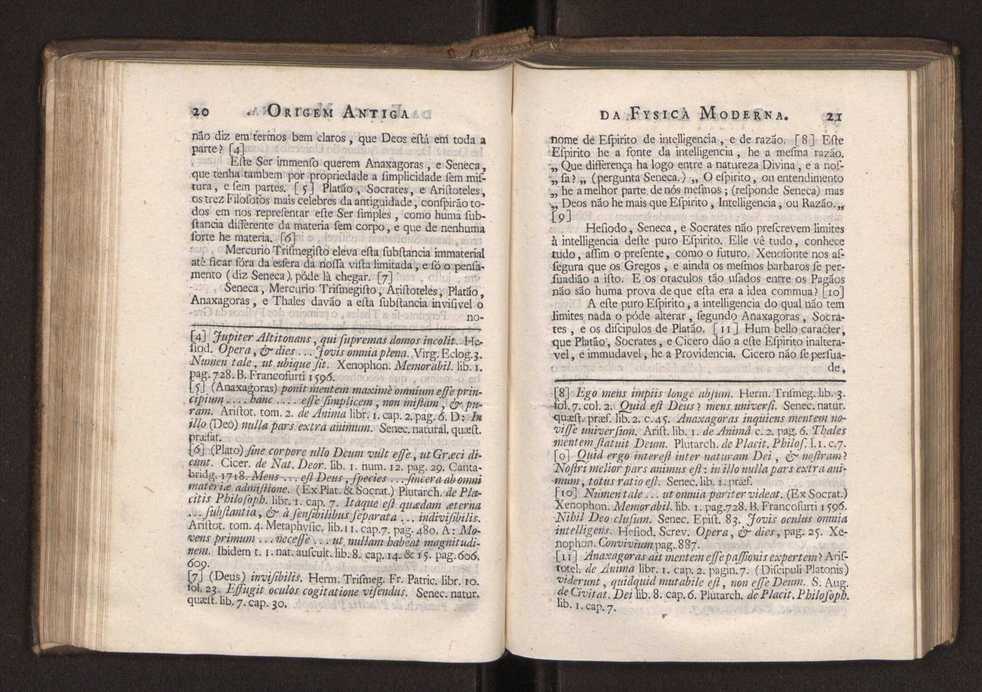 20 ORIGEM ANTIGA
não diz em termos bem claros, que Deos eſtá em toda a
parte? [4]
Eſte Ser immenſo querem Anaxagoras, e Seneca,
que tenha tambem por propriedade a ſimplicidade ſem miſ-
tura, e ſem partes. [5] Platão, Socrates, e Ariſtoteles,
os trez Filoſofos mais celebres da antiguidade, conſpirão to-
dos em nos repreſentar eſte Ser ſimples, como huma ſub-
ſtancia differente da materia ſem corpo, e que de nenhuma
ſorte he materia. [6]
Mercurio Triſmegiſto eleva eſta ſubſtancia immaterial
até ficar fóra da esfera da noſſa viſta limitada, e ſó o penſa-
mento (diz Seneca) póde lá chegar. [7]
Seneca, Mercurio Triſmegiſto, Ariſtoteles, Platão,
Anaxagoras, e Thales davão a eſta ſubſtancia inviſivel o
no-
[4] Jupiter Altitonans, qui ſupremas domos incolit. He-
ſiod. Opera, & dies... Jovis omnia plena. Virg. Eclog. 3.
Numen tale, ut ubique ſit. Xenophon. Memorabil. lib. 1.
pag. 728. B. Francofurti 1596.
[5] (Anaxagoras) ponit mentem maximè omnium eſſe prin-
cipium .... hanc .... eſſe ſimplicem, non miſtam, & pu-
ram. Ariſtot. tom. 2. de Anima libr. 1. cap. 2. pag. 6. D: In
illo (Deo) nulla pars extra animum. Senec. natural, quæſt.
præfat.
[6] (Plato) ſine corpore ullo Deum vult eſſe, ut Græci di-
cunt. Cicer. de Nat. Deor. lib. 1. num. 12. pag. 29. Canta-
bridg. 1718. Mens ... eſt Deus, ſpecies ... ſincera ab omni
materiæ admiſtione. (Ex Plat. & Socrat.) Plutarch. de Pla-
citis Philoſoph. libr. 1. cap. 7. Itaque eſt quædam æterna
... ſubſtantia, & à ſenſibilibus ſeparata ... indiviſibilis.
Ariſtot. tom. 4. Metaphyſic. lib. 11. cap. 7. pag. 480. A: Mo-
vens primum ... neceſſe ... ut nullam habeat magnitudi-
nem. Ibidem t. 1. nat. auſcult. lib. 8. cap. 14. & 15. pag. 606.
609.
[7] (Deus) inviſibilis. Herm. Triſmeg. Fr. Patric. libr. 10.
fol. 23. Effugit oculos cogitatione viſendus. Senec. natur.
quæſt. lib. 7. cap. 30.
DA FYSICA MODERNA. 21
nome de Eſpirito de intelligencia, e de razão. [8] Eſte
Eſpirito he a fonte da intelligencia, he a meſma razão.
„ Que differença ha logo entre a natureza Divina, e a noſ-
„ ſa? „ (pergunta Seneca.) „ O eſpirito, ou entendimento
„ he a melhor parte de nós meſmos; (reſponde Seneca) mas
„ Deos não he mais que Eſpirito, Intelligencia, ou Razão. „
[9]
Heſiodo, Seneca, e Socrates não preſcrevem limites
à intelligencia deſte puro Eſpirito. Elle vê tudo, conhece
tudo, aſſim o preſente, como o futuro. Xenofonte nos aſ-
ſegura que os Gregos, e ainda os meſmos barbaros ſe per-
ſuadião a iſto. E os oraculos tão uſados entre os Pagãos
não são huma prova de que eſta era a idea commua? [10]
A eſte puro Eſpirito, a intelligencia do qual não tem
limites, nada o póde alterar, ſegundo Anaxagoras, Socra-
tes, e os diſcipulos de Platão. [11] Hum bello caracter,
que Platão, Socrates, e Cicero dão a eſte Eſpirito inaltera-
vel, e immudavel, he a Providencia. Cicero não ſe perſua-
de,
[8] Ego mens impiis longe abſum. Herm. Triſmeg. lib. 3.
fol. 7. col. 2. Quid eſt Deus? mens univerſi. Senec. natur.
quæſt. præf. lib. 2. c. 45. Anaxagoras inquiens mentem no-
viſſe univerſum. Ariſt. lib. 1. de Animâ c. 2. pag. 6. Thales
mentem ſtatuit Deum. Plutarch. de Placit. Philoſ. l. 1. c. 7.
[9] Quid ergo intereſt inter naturam Dei, & noſtram?
Noſtri melior pars animus eſt: in illo nulla pars extra ani-
mum, totus ratio eſt. Senec. lib. 1. præf.
[10] Numen tale ... ut omnia pariter videat. (Ex Socrat.)
Xenophon. Memorabil. lib. 1. pag. 728. B. Francofurti 1596.
Nihil Deo cluſum. Senec. Epiſt. 83. Jovis oculus omnia
intelligens. Heſiod. Screv. Opera, & dies, pag. 25. Xe-
nophon. Convivium pag. 887.
[11] Anaxagoras ait mentem eſſe paſſionis expertem? Ariſ-
totel. de Anima libr. 1. cap. 2. pagin. 7. (Diſcipuli Platonis)
viderunt, quidquid mutabile eſt, non eſſe Deum. S. Aug.
de Civitat. Dei lib. 8. cap. 6. Plutarch. de Placit. Philoſoph.
lib. 1. cap. 7.